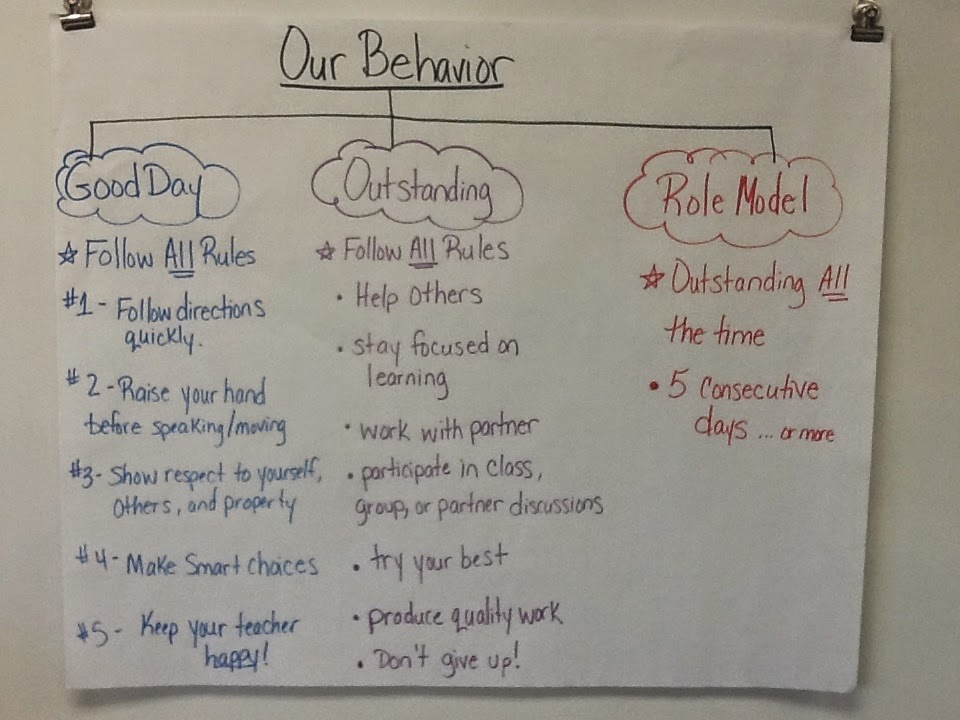 Our Behavior
Good Day
☆ Follow All Rules
#1 - Follow directions
quickly.
#2 - Raise your hand
before speaking/moving
#3 - Show respect to yourself,
others, and property
#4 - Make Smart choices
#5 - Keep your teacher
happy!
Outstanding
☆ Follow All Rules
• Help others
• stay focused on
learning
• work with partner
• participate in class,
group, or partner discussions
• try your best
• produce quality work
• Don't give up!
Role Model
☆ Outstanding All
the time
• 5 consecutive
days ... or more